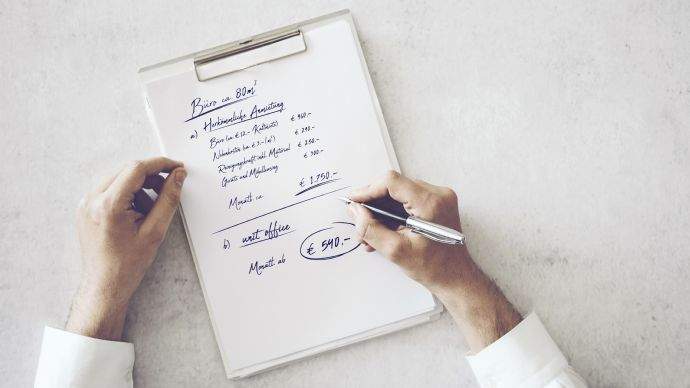 Büro ca. 80m²
a) Herkömmliche Anmietung
Büro (ca. € 12.- /Kaltmiete) € 960.-
Nebenkosten (ca. € 3.- /m²) € 240.-
Reinigungskraft inkl. Material € 250.-
Geräte und Möblierung € 300.-
Monatl. ca. € 1.750.-
b) unit office
Monatl. ab € 540.-